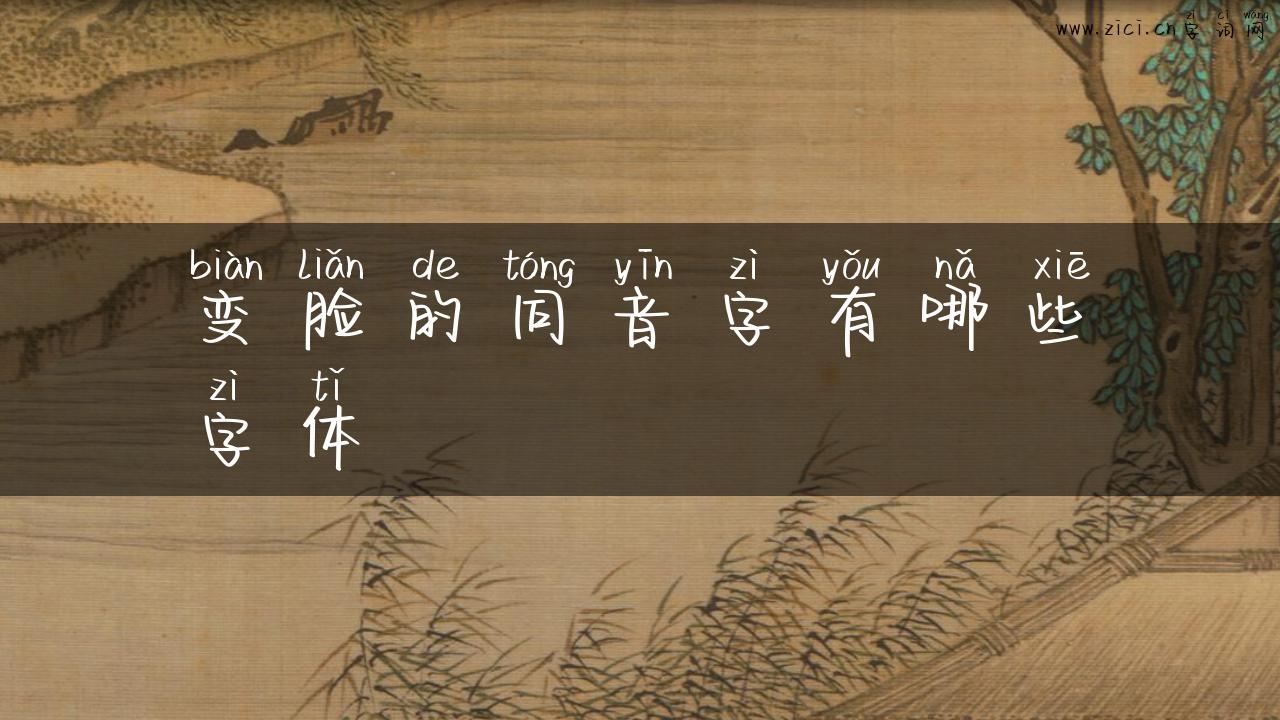 zì cí wǎng
www.zici.cn字词网
biàn liǎn de tóng yīn zì yǒu nǎ xiē
变脸的同音字有哪些
zì tǐ
字体